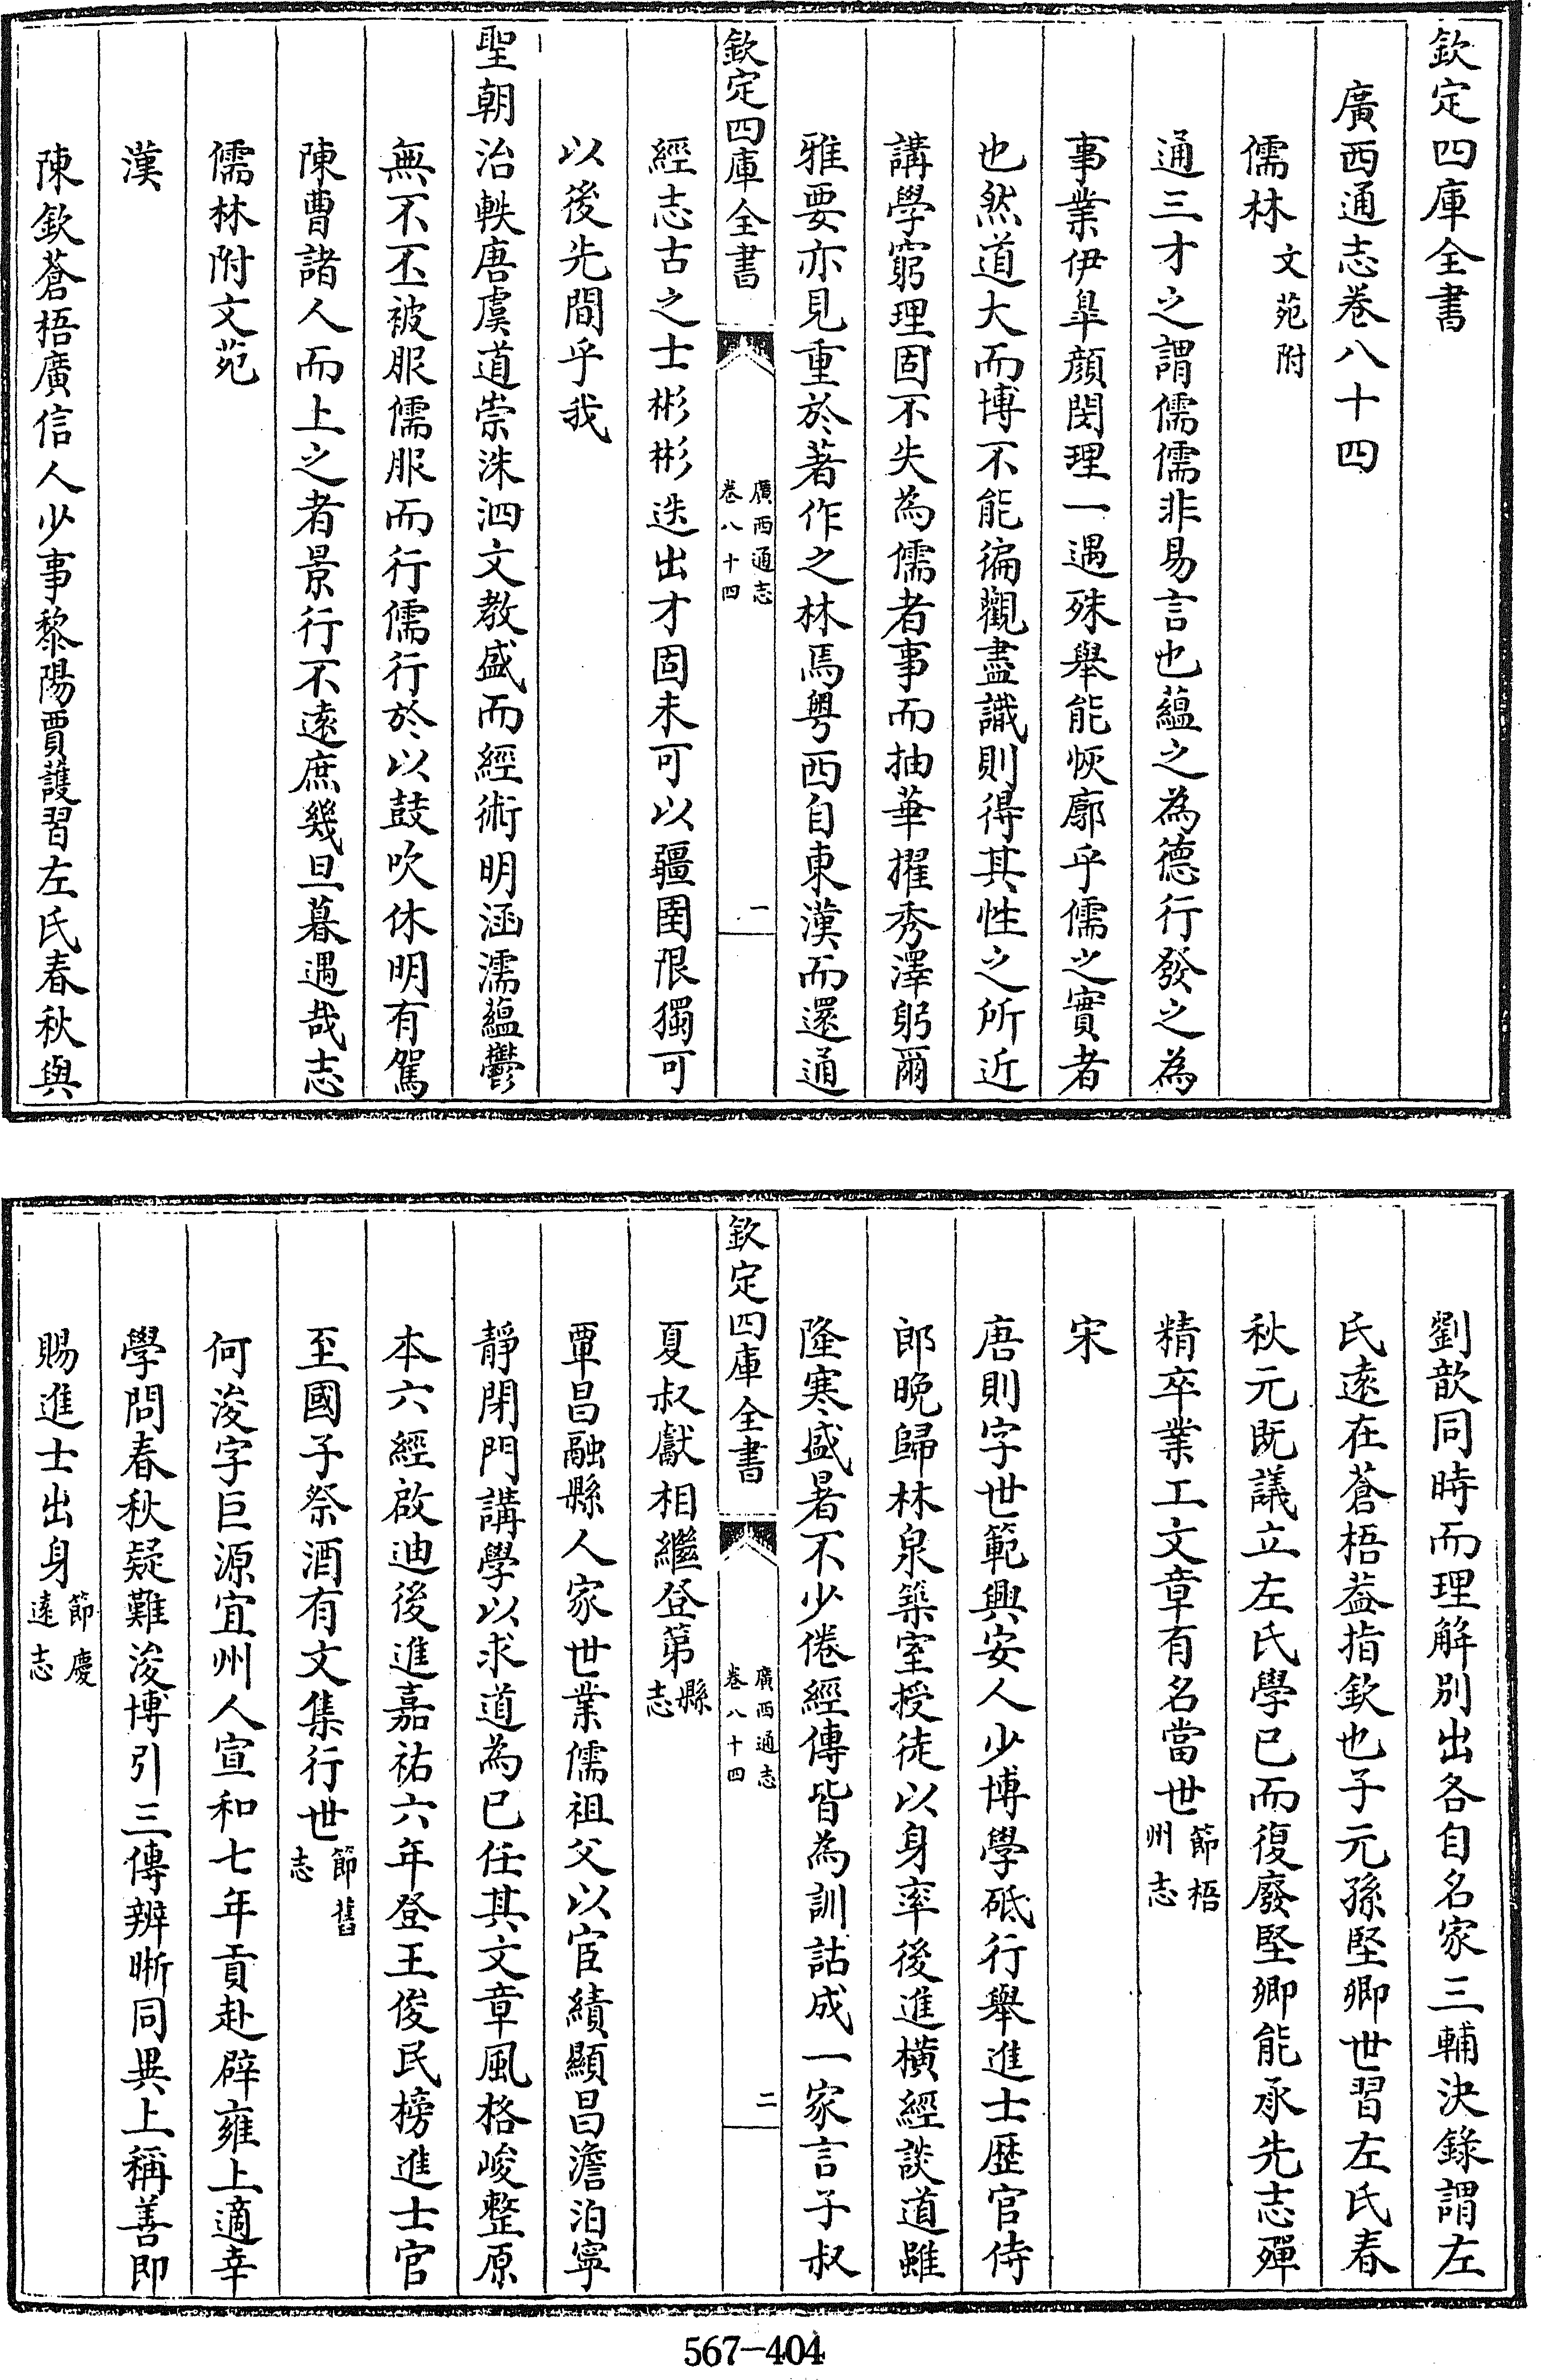 欽定四庫全書
廣西通志卷八十四
儒林文苑附
通三才之謂儒儒非易言也蘊之為德行發之為
事業伊臯顏閔理一遇殊舉能恢廓乎儒之實者
也然道大而博不能徧觀盡識則得其性之所近
講學窮理固不失為儒者事而抽華擢秀澤躬爾
雅要亦見重於著作之林焉粤西自東漢而還通
欽定四庫全書
廣西通志
卷八十四
一
經志古之士彬彬迭出才固未可以疆圉限獨可
以後先間乎我
聖朝治軼唐虞道崇洙泗文教盛而經術明涵濡蘊鬱
無不丕被服儒服而行儒行於以鼓吹休明有駕
陳曹諸人而上之者景行不遠庶幾旦暮遇哉志
儒林附文苑
漢
陳欽蒼梧廣信人少事黎陽賈護習左氏春秋與
劉歆同時而理解別出各自名家三輔決錄謂左
氏遠在蒼梧葢指欽也子元孫堅卿世習左氏春
秋元既議立左氏學已而復廢堅卿能承先志殫
精卒業工文章有名當世節梧州志
宋
唐則字世範興安人少博學砥行舉進士歴官侍
郎晚歸林泉築室授徒以身率後進橫經談道雖
隆寒盛暑不少倦經傳皆為訓詁成一家言子叔
欽定四庫全書
廣西通志
卷八十四
二
夏叔獻相繼登第縣志
覃昌融縣人家世業儒祖父以宦績顯昌澹泊寧
靜閉門講學以求道為已任其文章風格峻整原
本六經啟迪後進嘉祐六年登王俊民榜進士官
至國子祭酒有文集行世節舊志
何浚字巨源宜州人宣和七年貢赴辟雍上適幸
學問春秋疑難浚博引三傳辨晰同異上稱善即
賜進士出身節慶遠志
567-404